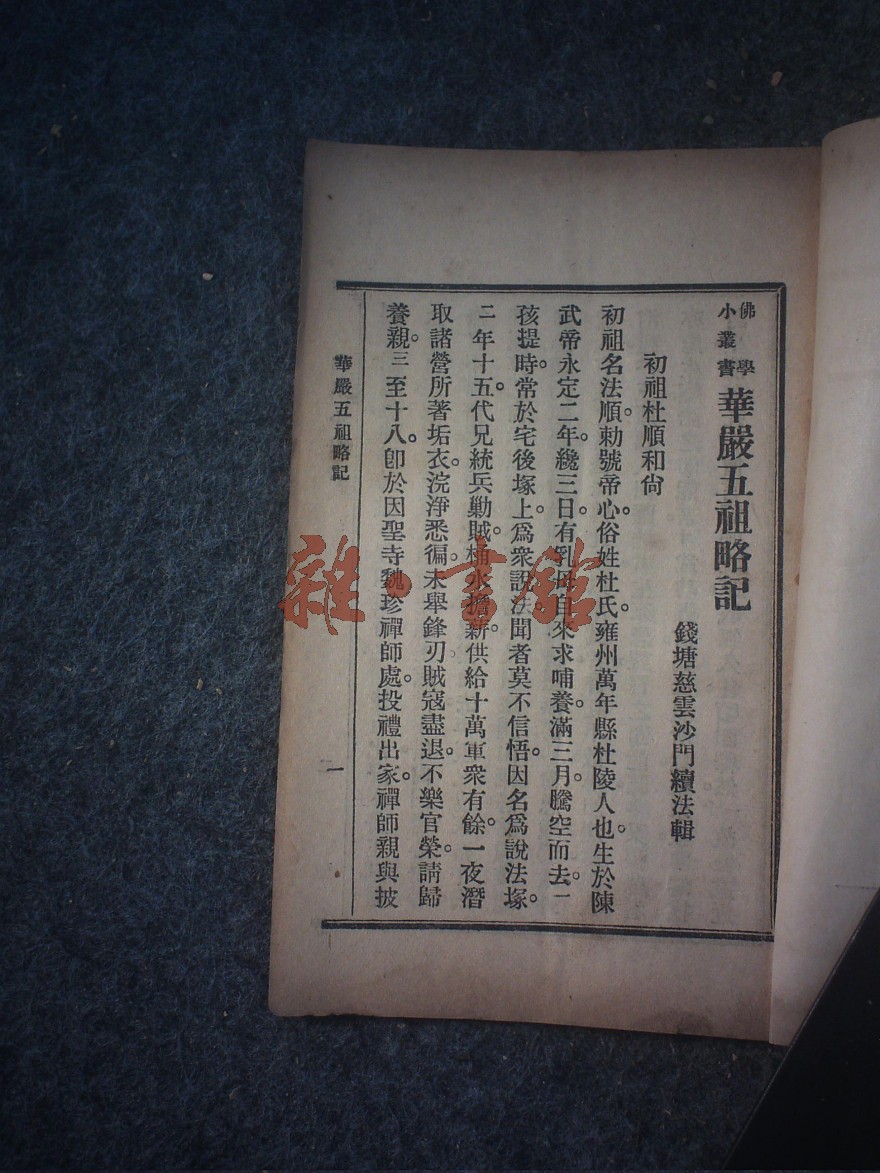 佛學
小叢書
華嚴五祖略記
錢塘慈雲沙門續法輯
初祖杜順和尙
初祖名法順。勅號帝心。俗姓杜氏。雍州萬年縣杜陵人也。生於陳
武帝永定二年。纔三日。有乳母自來求哺養。滿三月。騰空而去。一
孩提時。常於宅後塚上。爲衆說法。聞者莫不信悟。因名爲說法塚。
二年十五。代兄統兵勦賊。桶水擔薪。供給十萬軍衆有餘。一夜潛
取諸營所著垢衣。浣淨悉徧。未舉鋒刃。賊寇盡退。不樂官榮。請歸
養親。三至十八。卽於因聖寺魏珍禪師處。投禮出家。禪師親與披
華嚴五祖略記
一
雜·書館